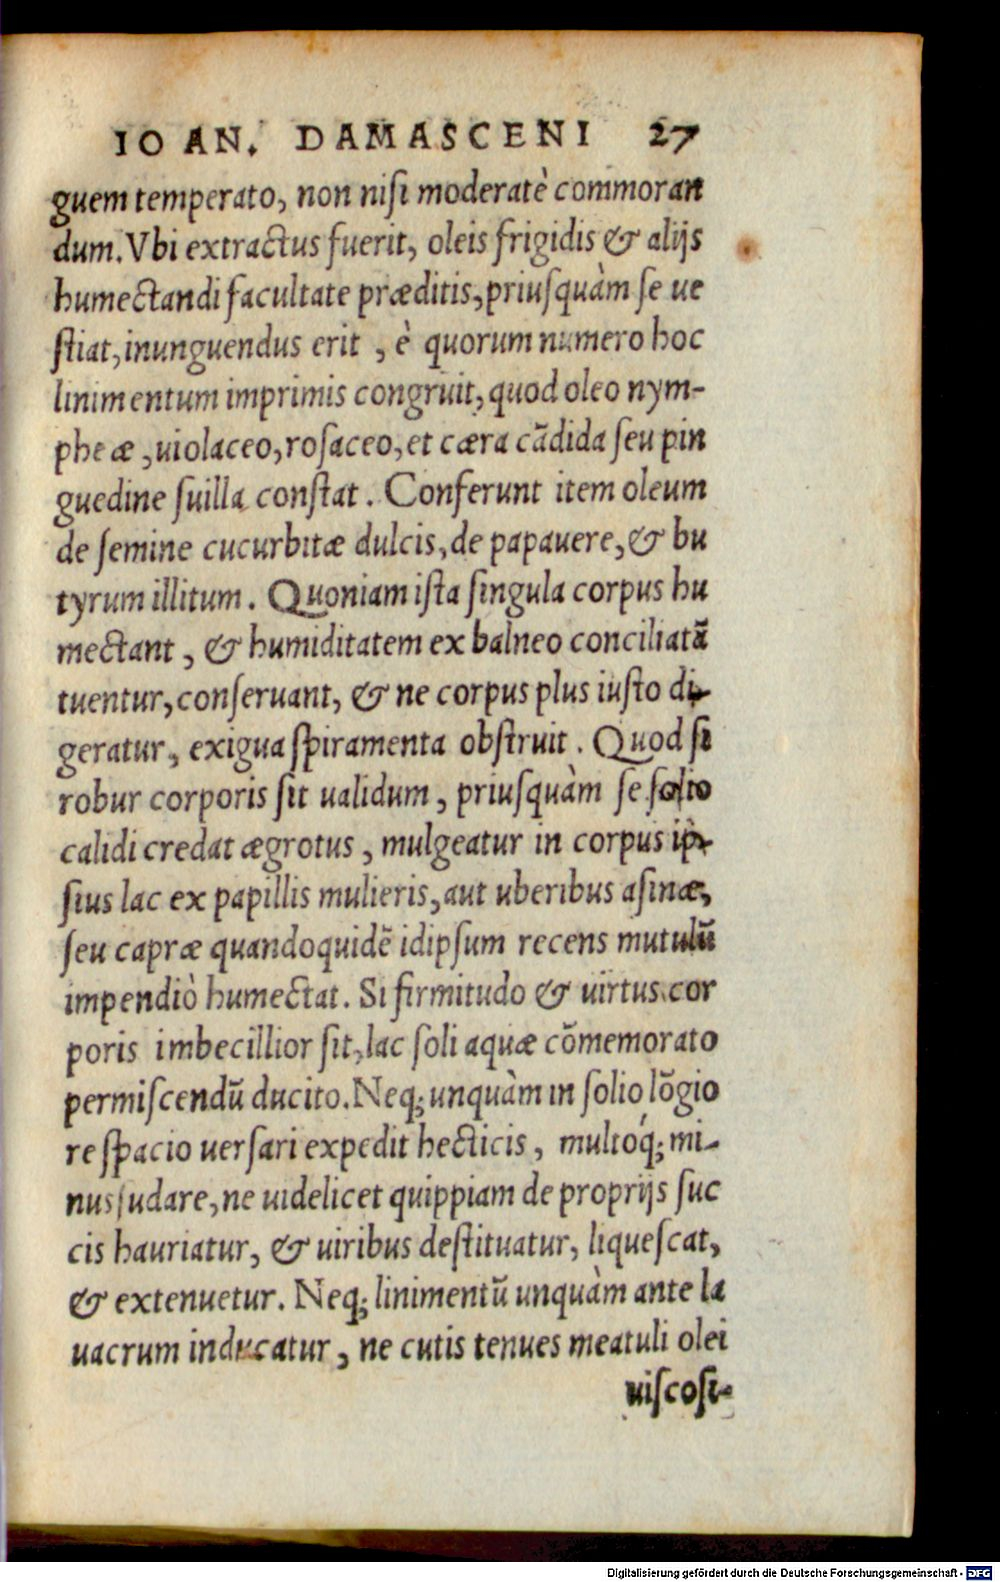 IOAN. DAMASCENI 27
guem temperato, non nisi moderatè commoran
dum. Vbi extractus fuerit, oleis frigidis & alijs
humectandi facultate præditis, priusquàm se ue
stiat, inunguendus erit, è quorum numero hoc
linimentum imprimis congruit, quod oleo nym-
pheæ, uiolaceo, rosaceo, et cæra cādida seu pin
guedine suilla constat. Conferunt item oleum
de semine cucurbitæ dulcis, de papauere, & bu
tyrum illitum. Quoniam ista singula corpus hu
mectant, & humiditatem ex balneo conciliatā
tuentur, conseruant, & ne corpus plus iusto di-
geratur, exigua spiramenta obstruit. Quod si
robur corporis sit ualidum, priusquàm se solio
calidi credat ægrotus, mulgeatur in corpus ip-
sius lac ex papillis mulieris, aut uberibus asinæ,
seu capræ quandoquidē idipsum recens mutulū
impendiò humectat. Si firmitudo & uirtus cor
poris imbecillior sit, lac soli aquæ cōmemorato
permiscendū ducito. Neq; unquàm in solio lōgio
re spacio uersari expedit hecticis, multóq; mi-
nus sudare, ne uidelicet quippiam de proprijs suc
cis hauriatur, & uiribus destituatur, liquescat,
& extenuetur. Neq; linimentū unquàm ante la
uacrum inducatur, ne cutis tenues meatuli olei
uiscosi-
Digitalisierung gefördert durch die Deutsche Forschungsgemeinschaft - DFG